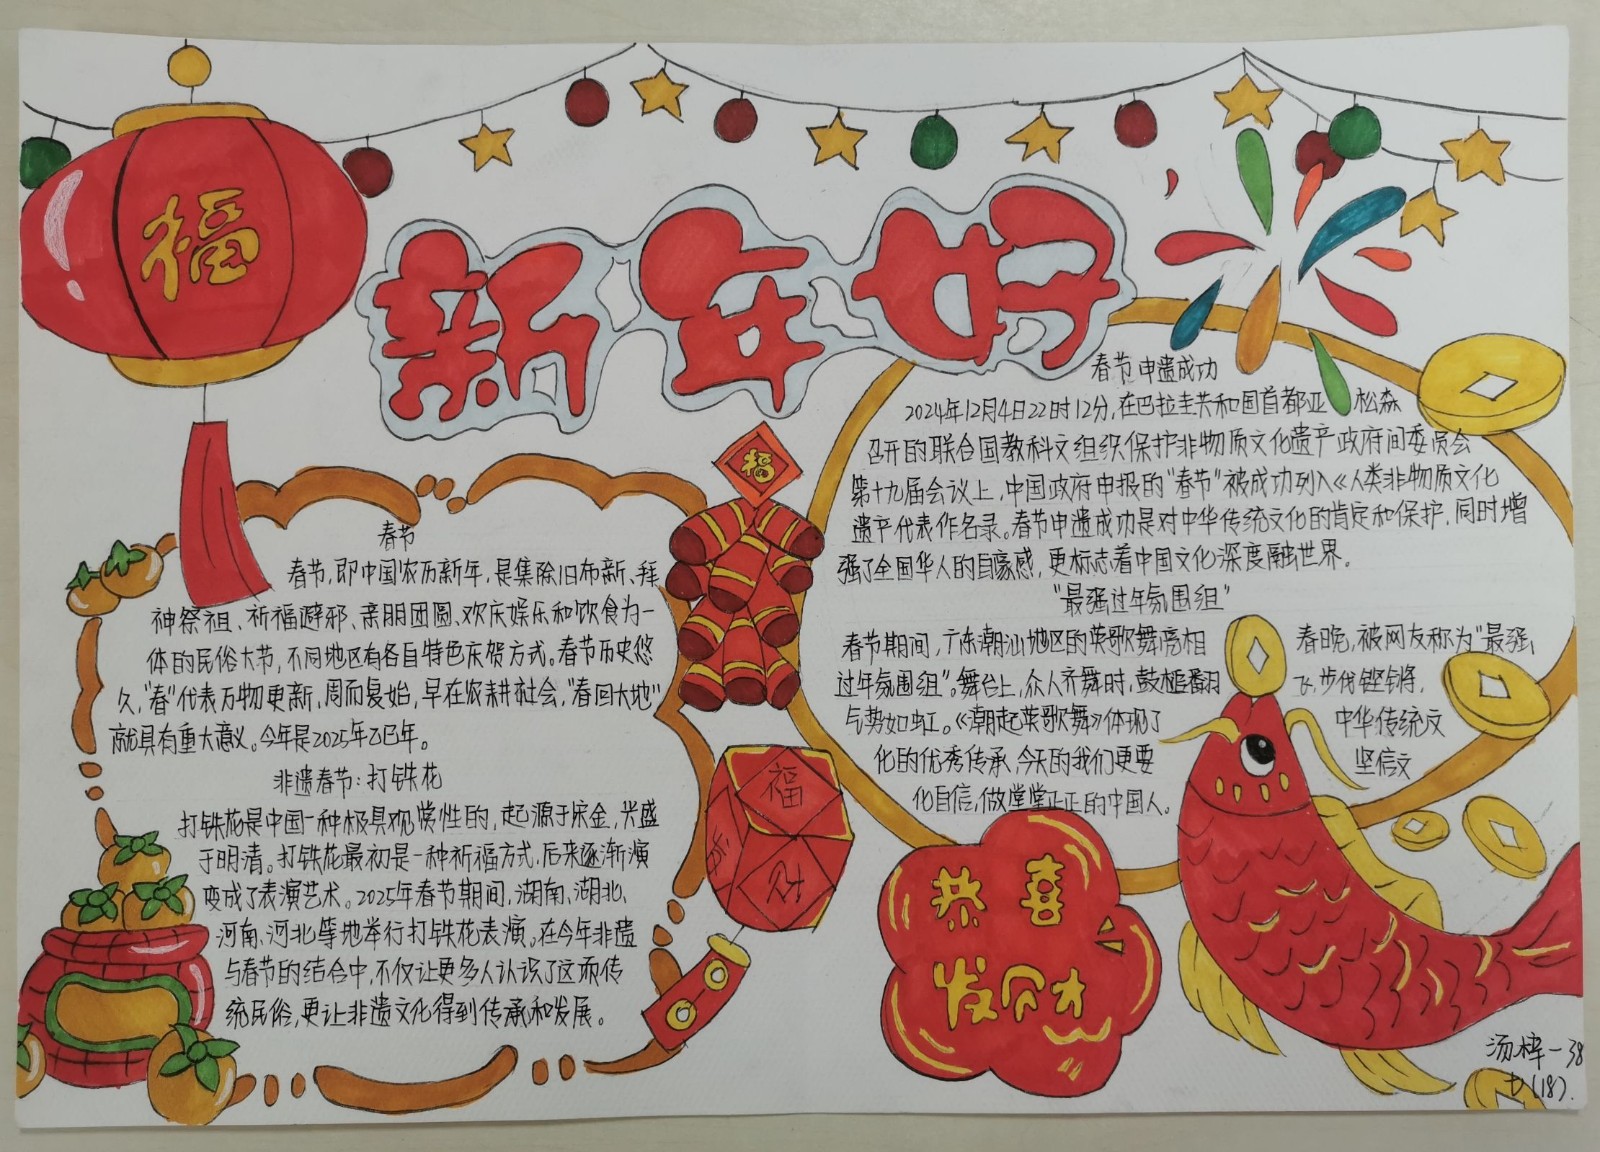 福
新年好
春节
春节,即中国农历新年,是集除旧布新、拜
神祭祖、祈福避邪、亲朋团圆、欢庆娱乐和饮食为一
体的民俗大节,不同地区有各自特色庆贺方式。春节历史悠
久,“春”代表万物更新、周而复始,早在农耕社会,“春回大地”
就具有重大意义。今年是2025年乙巳年。
非遗春节:打铁花
打铁花是中国一种极具观赏性的,起源于宋金,兴盛
于明清。打铁花最初是一种祈福方式,后来逐渐演
变成了表演艺术。2025年春节期间,湖南、湖北、
河南、河北等地举行打铁花表演。在今年非遗
与春节的结合中,不仅让更多人认识了这项传
统民俗,更让非遗文化得到传承和发展。
福
福
财
春节申遗成功
2024年12月4日22时12分,在巴拉圭共和国首都亚松森
召开的联合国教科文组织保护非物质文化遗产政府间委员会
第十九届会议上,中国政府申报的“春节”被成功列入《人类非物质文化
遗产代表作名录。春节申遗成功是对中华传统文化的肯定和保护,同时增
强了全国华人的自豪感,更标志着中国文化深度融世界。
“最强过年氛围组”
春节期间,广东潮汕地区的英歌舞亮相春晚,被网友称为“最强
过年氛围组”。舞台上,众人齐舞时,鼓槌翻飞,步伐铿锵,
气势如虹。《潮起英歌舞》体现了中华传统文
化的优秀传承,今天的我们更要坚信文
化自信,做堂堂正正的中国人。
恭喜
发财
汤梓一38
七(18).